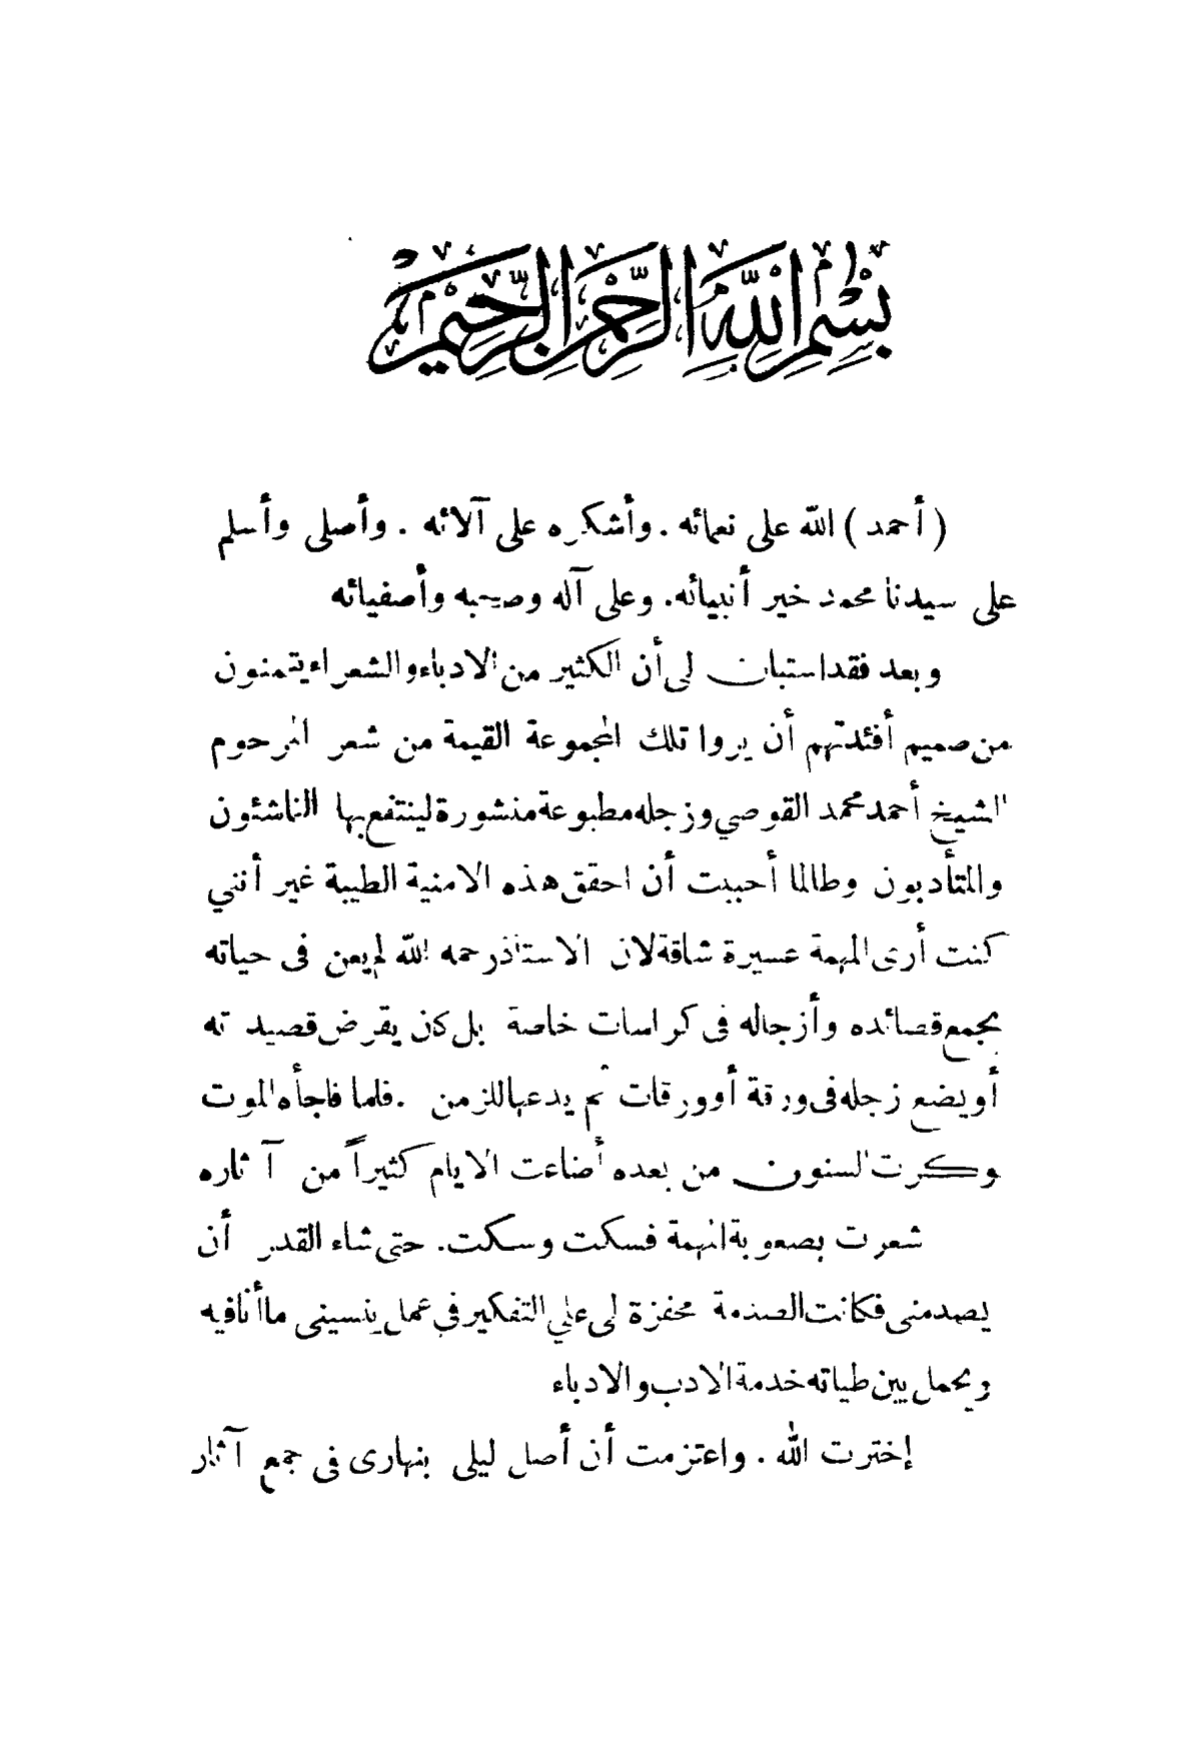 بِسْمِ اللهِ الرَّحْمنِ الرَّحِيمِ
( أحمد ) اللّه على نعمائه . وأشكره على آلائه . وأصلى وأسلم
على سيدنا محمد خير أنبيائه. وعلى آله وصحبه وأصفيائه
وبعد فقد استبان لى أن الكثير من الادباء والشعراء يتمنون
من صميم أفئدتهم أن يروا تلك المجموعة القيمة من شعر المرحوم
الشيخ أحمد محمد القوصي وزجله مطبوعة منشورة لينتفع بها الناشئون
والمتأدبون وطالما أحببت أن احقق هذه الامنية الطيبة غير أنني
كنت أرى المهمة عسيرة شاقة لان الاستاذ رحمه اللّه لم يعن فى حياته
بجمع قصائده وأزجاله فى كراسات خاصة بل كان يقرض قصيدته
أو يضع زجله فى ورقة أو ورقات ثم يدعها للزمن . فلما فاجأه الموت
وكرت السنون من بعده أضاعت الايام كثيراً من آثاره
شعرت بصعوبة المهمة فسكت وسكت. حتى شاء القدر أن
يصدمنى فكانت الصدمة محفزة لى علي التفكير في عمل ينسينى ما أنا فيه
ويحمل بين طياته خدمة الادب والادباء
إخترت الله . واعتزمت أن أصل ليلى بنهارى فى جمع آثار